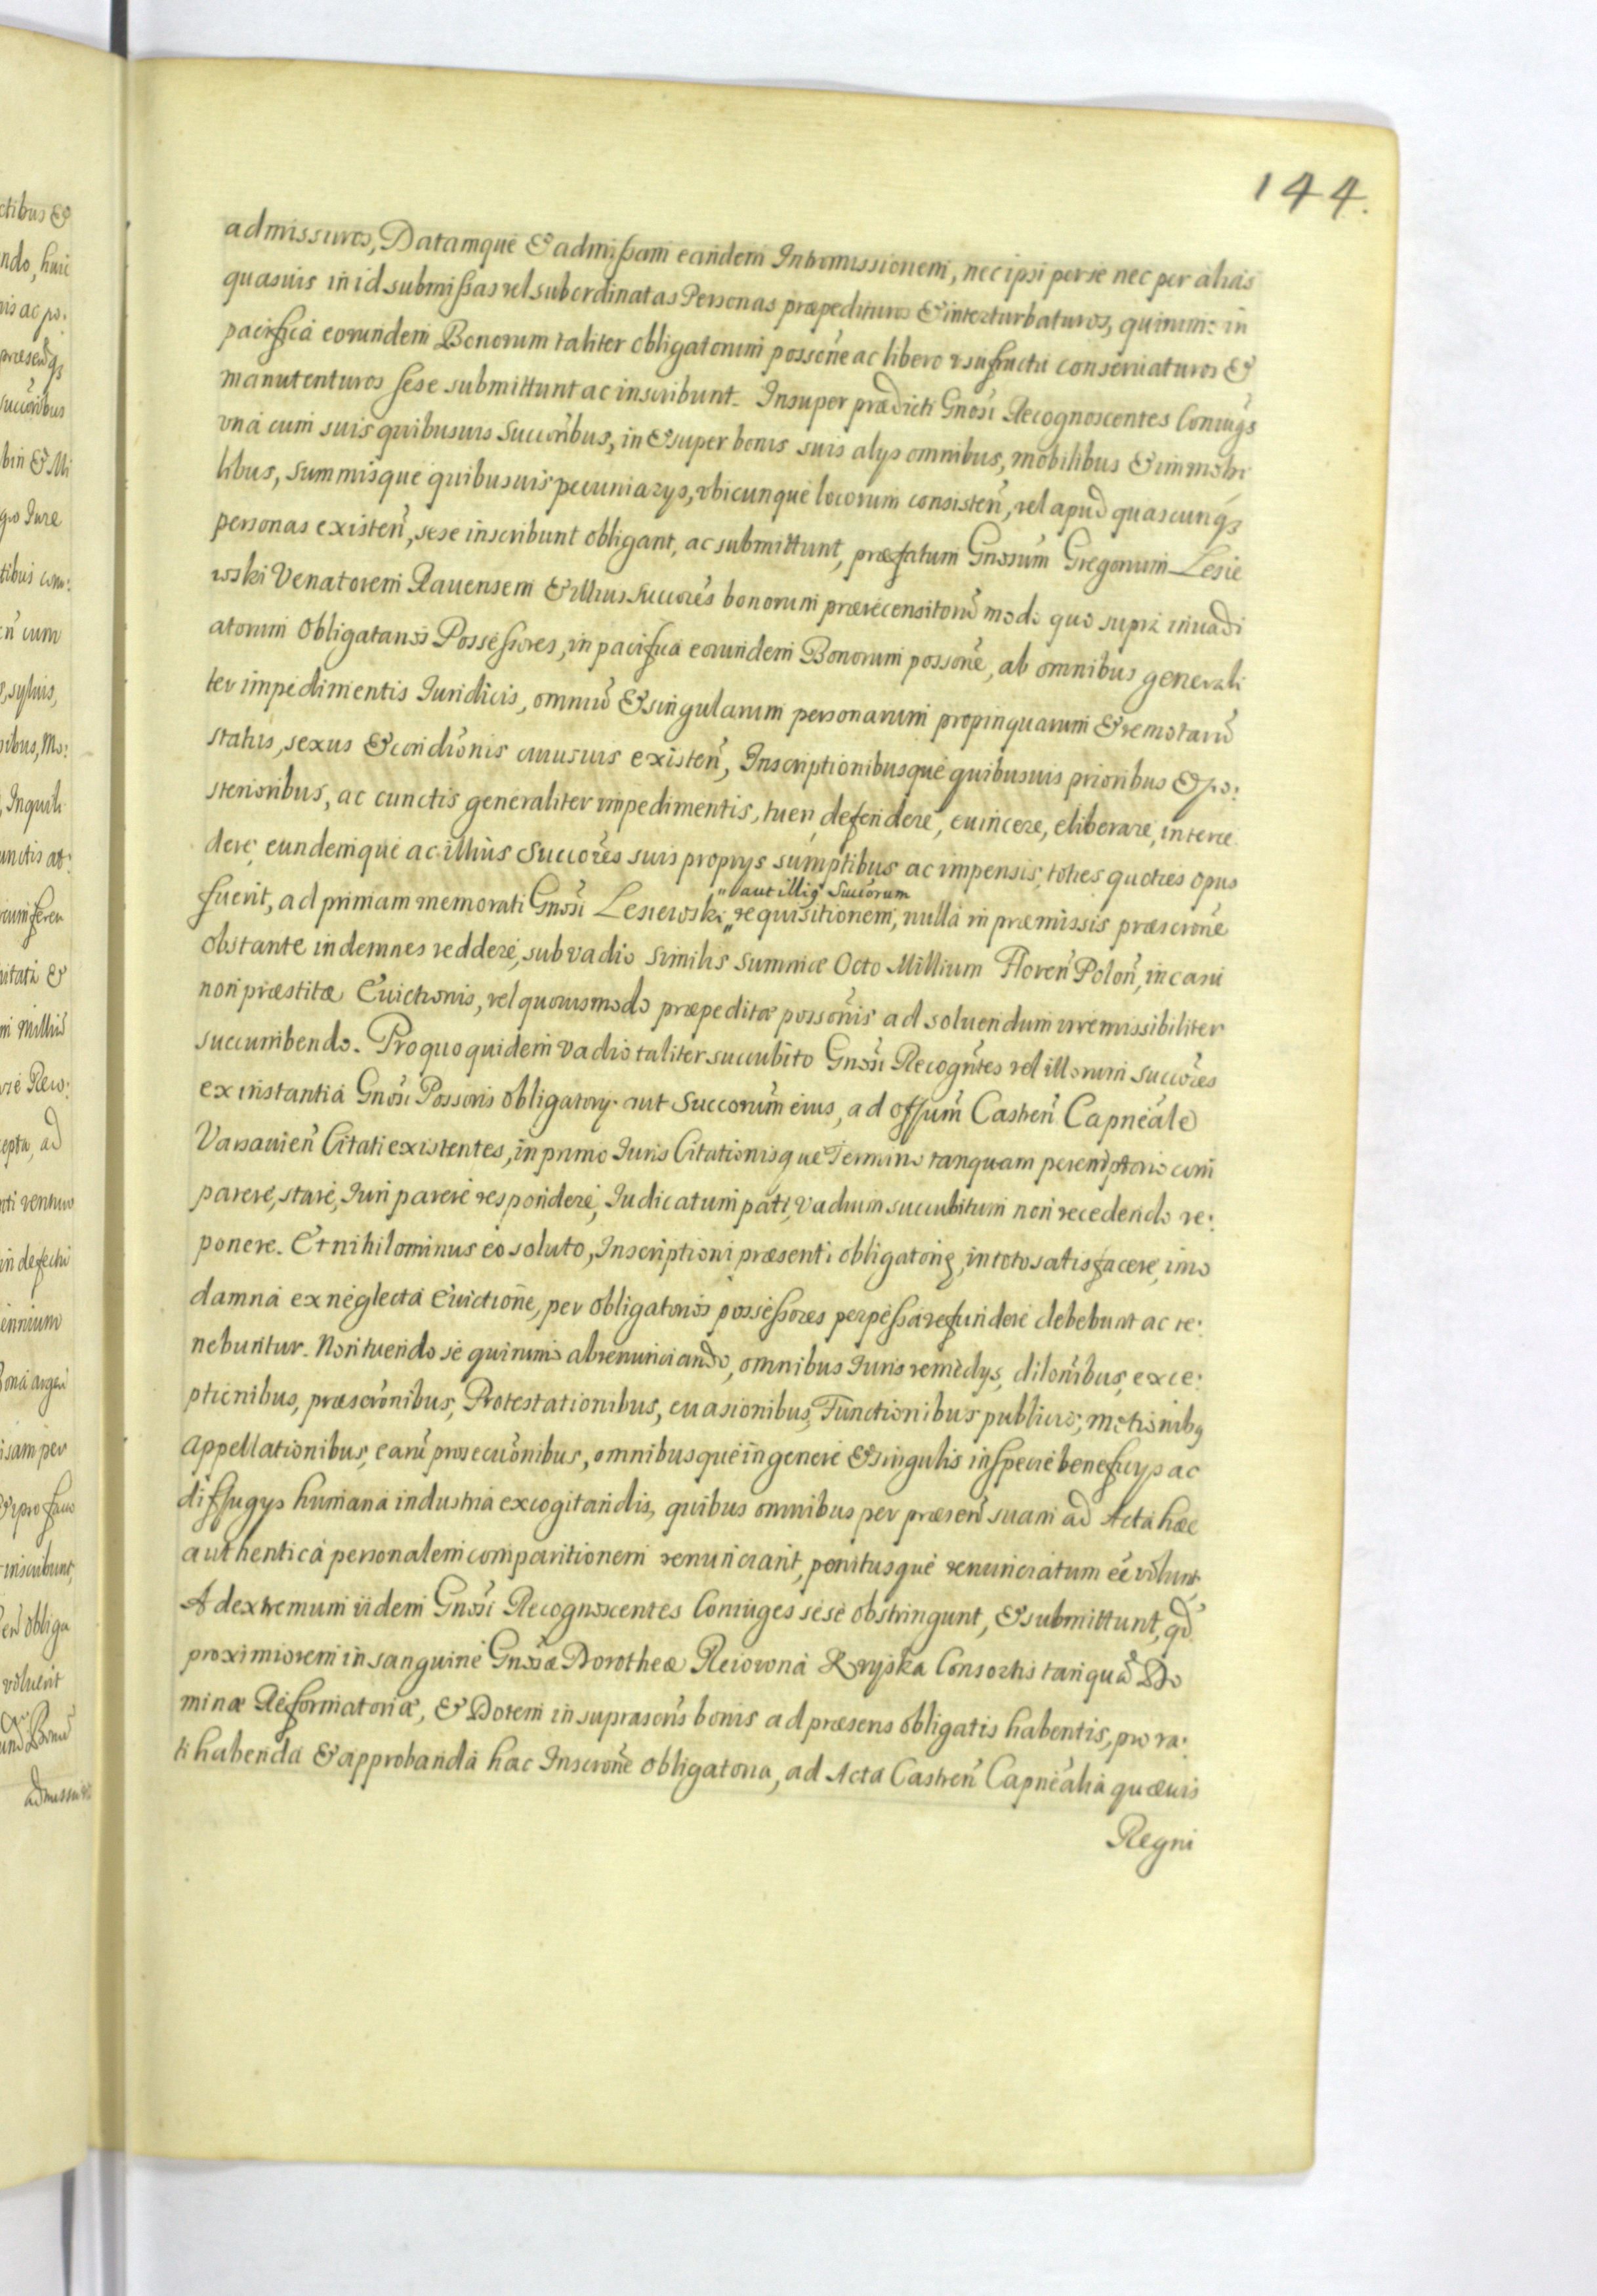 144.
admissuros, Datamque & admissam eandem Intromissionem, nec ipsi per se nec per alias
quasuis in id submissas vel subordinatas Personas præpedituros & interturbaturos, quinimo in
pacifica eorundem Bonorum taliter obligatorum possõne ac libero vsufructu conseruaturos &
manutenturos sese submittunt ac inscribunt. Insuper prædicti Gnosi Recognoscentes Coniug̃s
vna cum suis quibusuis Succoribus, in & super bonis suis alys omnibus, mobilibus & immobi
libus, summisque quibusuis pecuniarys, vbicunque locorum consisten̄, vel apud quascunq3
personas existen̄, sese inscribunt obligant, ac submittunt, præfatum Gnosum Gregorium Lesie
wski Venatorem Rauensem & illius succores bonorum prærecensitorū modo quo supra inuadi
atorum Obligatarios Possessores, in pacifica eorundem Bonorum possõne, ab omnibus generali
ter impedimentis Iuridicis, omniū & singularum personarum propinquarum & remotarū
status, sexus & condiõnis cuiusuis existen̄, Inscriptionibusque quibusuis prioribus & po:
sterioribus, ac cunctis generaliter impedimentis, tueri, defendere, euincere, eliberare, interce
dere, eundemque ac illius Succores suis proprys sumptibus ac impensis, toties quoties opus
" aut illig Succorum
fuerit, ad primam memorati Gnosi Lesiewski " requisitionem, nulla in præmissis præscrõne
obstante indemnes reddere, sub vadio similis summæ Octo Millium Floren̄ Polon̄, in casu
non præstitæ Euictionis, vel quouismodo præpeditæ possõnis ad soluendum irremissibiliter
succumbendo. Pro quo quidem vadio taliter succubito Gnosi Recogn̄tes vel illorum succores
ex instantia Gnosi Possoris obligatorij aut Succorum eius, ad offum Castren̄ Capneale
Varsauien̄ Citati existentes, in primo Iuris Citationisque Termino tanquam peremptorio com
parere, stare, Iuri parere respondere, Iudicatum pati, vadium succubitum non recedendo re:
ponere. Et nihilominus eo soluto, Inscriptioni præsenti obligatoriæ, in toto satisfacere, imo
damna ex neglecta Euictiõne, per obligatarios possessores perpessa refundere debebunt ac te:
nebuntur. Non tuendo se quinimo abrenunciando, omnibus Iuris remedys, dilõnibus, exce:
ptionibus, præscrõnibus, Protestationibus, euasionibus, Functionibus publicis, motionibq
Appellationibus, earū prosecuõnibus, omnibusque in genere & singulis in specie beneficys ac
diffugys humana industria excogitandis, quibus omnibus per præsen̄ suam ad Acta hæc
authentica personalem comparitionem renunciant, penitusque renunciatum eē volunt,
Ad extremum iidem Gnosi Recognoscentes Coniuges sese obstringunt, & submittunt, qd
proximiorem in sanguine Gnosæ Dorotheæ Reiowna Kryska Consortis tanquā Do
minæ Reformatoriæ, & Dotem in suprascris bonis ad præsens obligatis habentis, pro ra:
ti habenda & approbanda hac Inscrõne obligatoria, ad Acta Castren̄ Capnealia quæuis
Regni